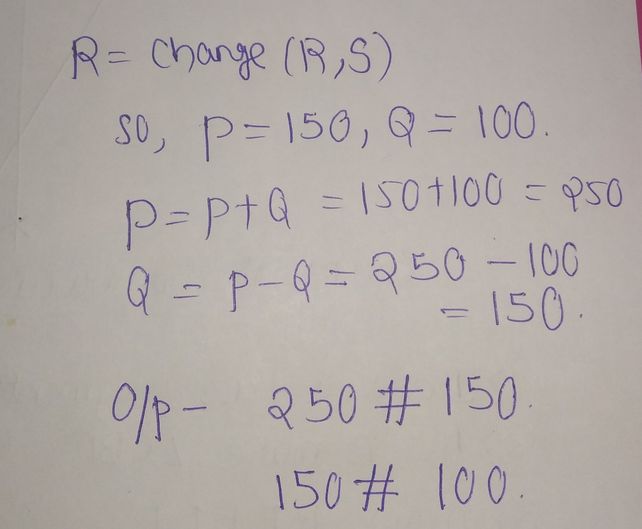 R = Change (R,S)
so, P = 150, Q = 100.
P = P+Q = 150+100 = 250
Q = P-Q = 250 - 100
= 150.
O/p - 250 # 150.
150 # 100.